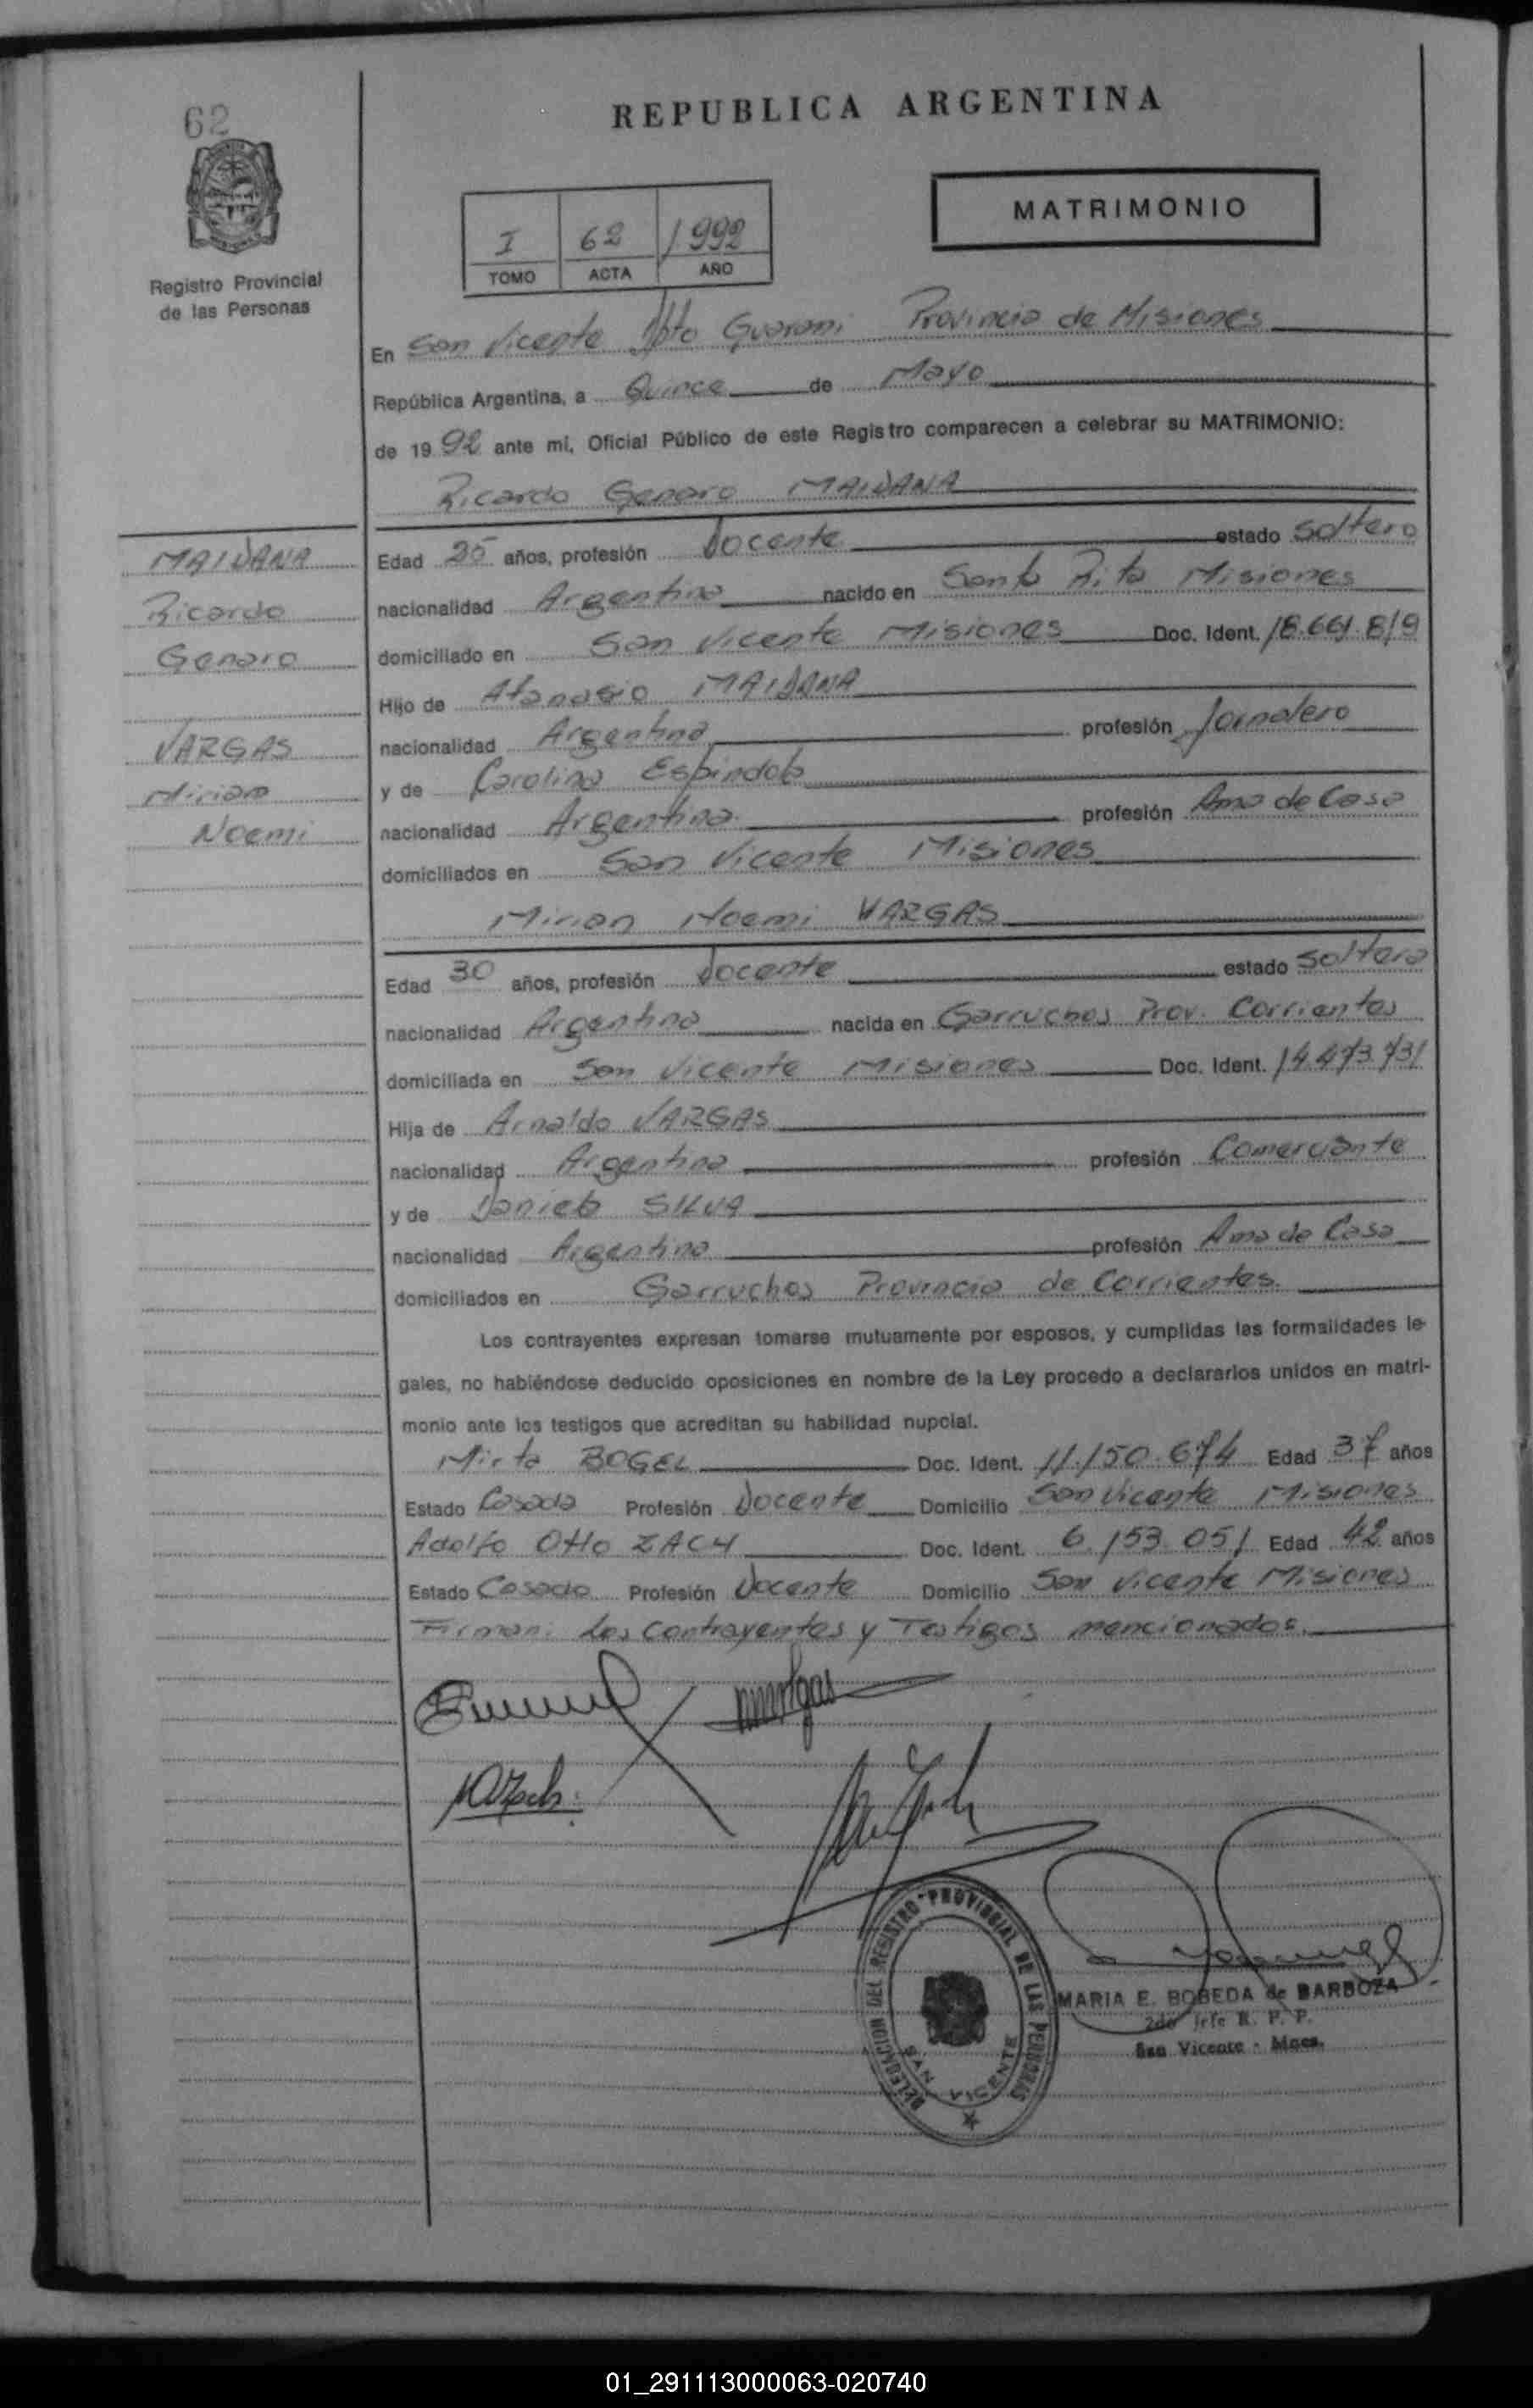 62
REPUBLICA ARGENTINA
MATRIMONIO
I 62 1992
TOMO ACTA AÑO
Registro Provincial
de las Personas
En San Vicente Dpto Guarani Provincia de Misiones
República Argentina, a Quince de Mayo
de 1992 ante mi, Oficial Público de este Registro comparecen a celebrar su MATRIMONIO:
Ricardo Genaro MAIDANA
MAIDANA
Ricardo
Genaro
VARGAS
Mirian
Noemi
Edad 25 años, profesión Docente estado Soltero
nacionalidad Argentina nacido en Santa Rita Misiones
domiciliado en San Vicente Misiones Doc. Ident. 18.661.819
Hijo de Atanasio MAIDANA
nacionalidad Argentina profesión Jornalero
y de Carolina Espindola
nacionalidad Argentina profesión Ama de Casa
domiciliados en San Vicente Misiones
Mirian Noemi VARGAS
Edad 30 años, profesión Docente estado Soltera
nacionalidad Argentina nacida en Garruchos Prov. Corrientes
domiciliada en San Vicente Misiones Doc. Ident. 14.473.731
Hija de Arnaldo VARGAS
nacionalidad Argentina profesión Comerciante
y de Daniela SILVA
nacionalidad Argentina profesión Ama de Casa
domiciliados en Garruchos Provincia de Corrientes.
Los contrayentes expresan tomarse mutuamente por esposos, y cumplidas las formalidades le-
gales, no habiéndose deducido oposiciones en nombre de la Ley procedo a declararlos unidos en matri-
monio ante los testigos que acreditan su habilidad nupcial.
Mirta BOGEL Doc. Ident. 11.150.674 Edad 37 años
Estado Casada Profesión Docente Domicilio San Vicente Misiones
Adolfo Otto ZACH Doc. Ident. 6.153.051 Edad 42 años
Estado Casado Profesión Docente Domicilio San Vicente Misiones
Firman: Los Contrayentes y Testigos mencionados.
DELEGACION DEL REGISTRO PROVINCIAL DE LAS PERSONAS
SAN VICENTE
MARIA E. BOBEDA de BARBOZA
2do Jefe R. P. P.
San Vicente - Mnes.
01_291113000063-020740